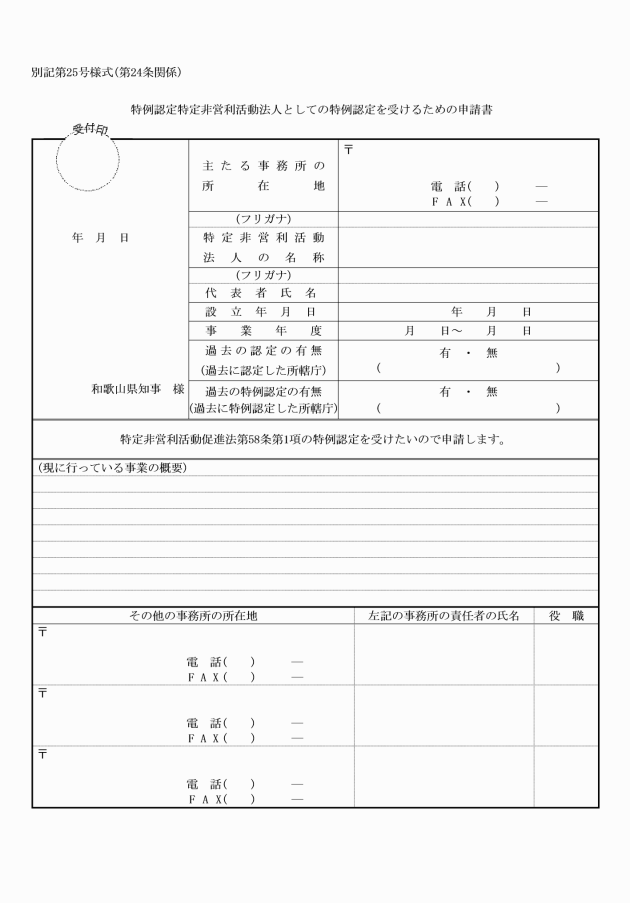 別記第25号様式(第24条関係)
特例認定特定非営利活動法人としての特例認定を受けるための申請書
受付印
年　月　日
和歌山県知事　様
主たる事務所の
所在地
〒
電　話(　　)　　―
ＦＡＸ(　　)　　―
(フリガナ)
特定非営利活動
法人の名称
(フリガナ)
代表者氏名
設立年月日
年　　月　　日
事業年度
月　　日～　　月　　日
過去の認定の有無
(過去に認定した所轄庁)
有　・　無
(　　　　　　　　)
過去の特例認定の有無
(過去に特例認定した所轄庁)
有　・　無
(　　　　　　　　)
特定非営利活動促進法第58条第1項の特例認定を受けたいので申請します。
(現に行っている事業の概要)
その他の事務所の所在地　左記の事務所の責任者の氏名　役　職
〒
電　話(　　)　　―
ＦＡＸ(　　)　　―
〒
電　話(　　)　　―
ＦＡＸ(　　)　　―
〒
電　話(　　)　　―
ＦＡＸ(　　)　　―